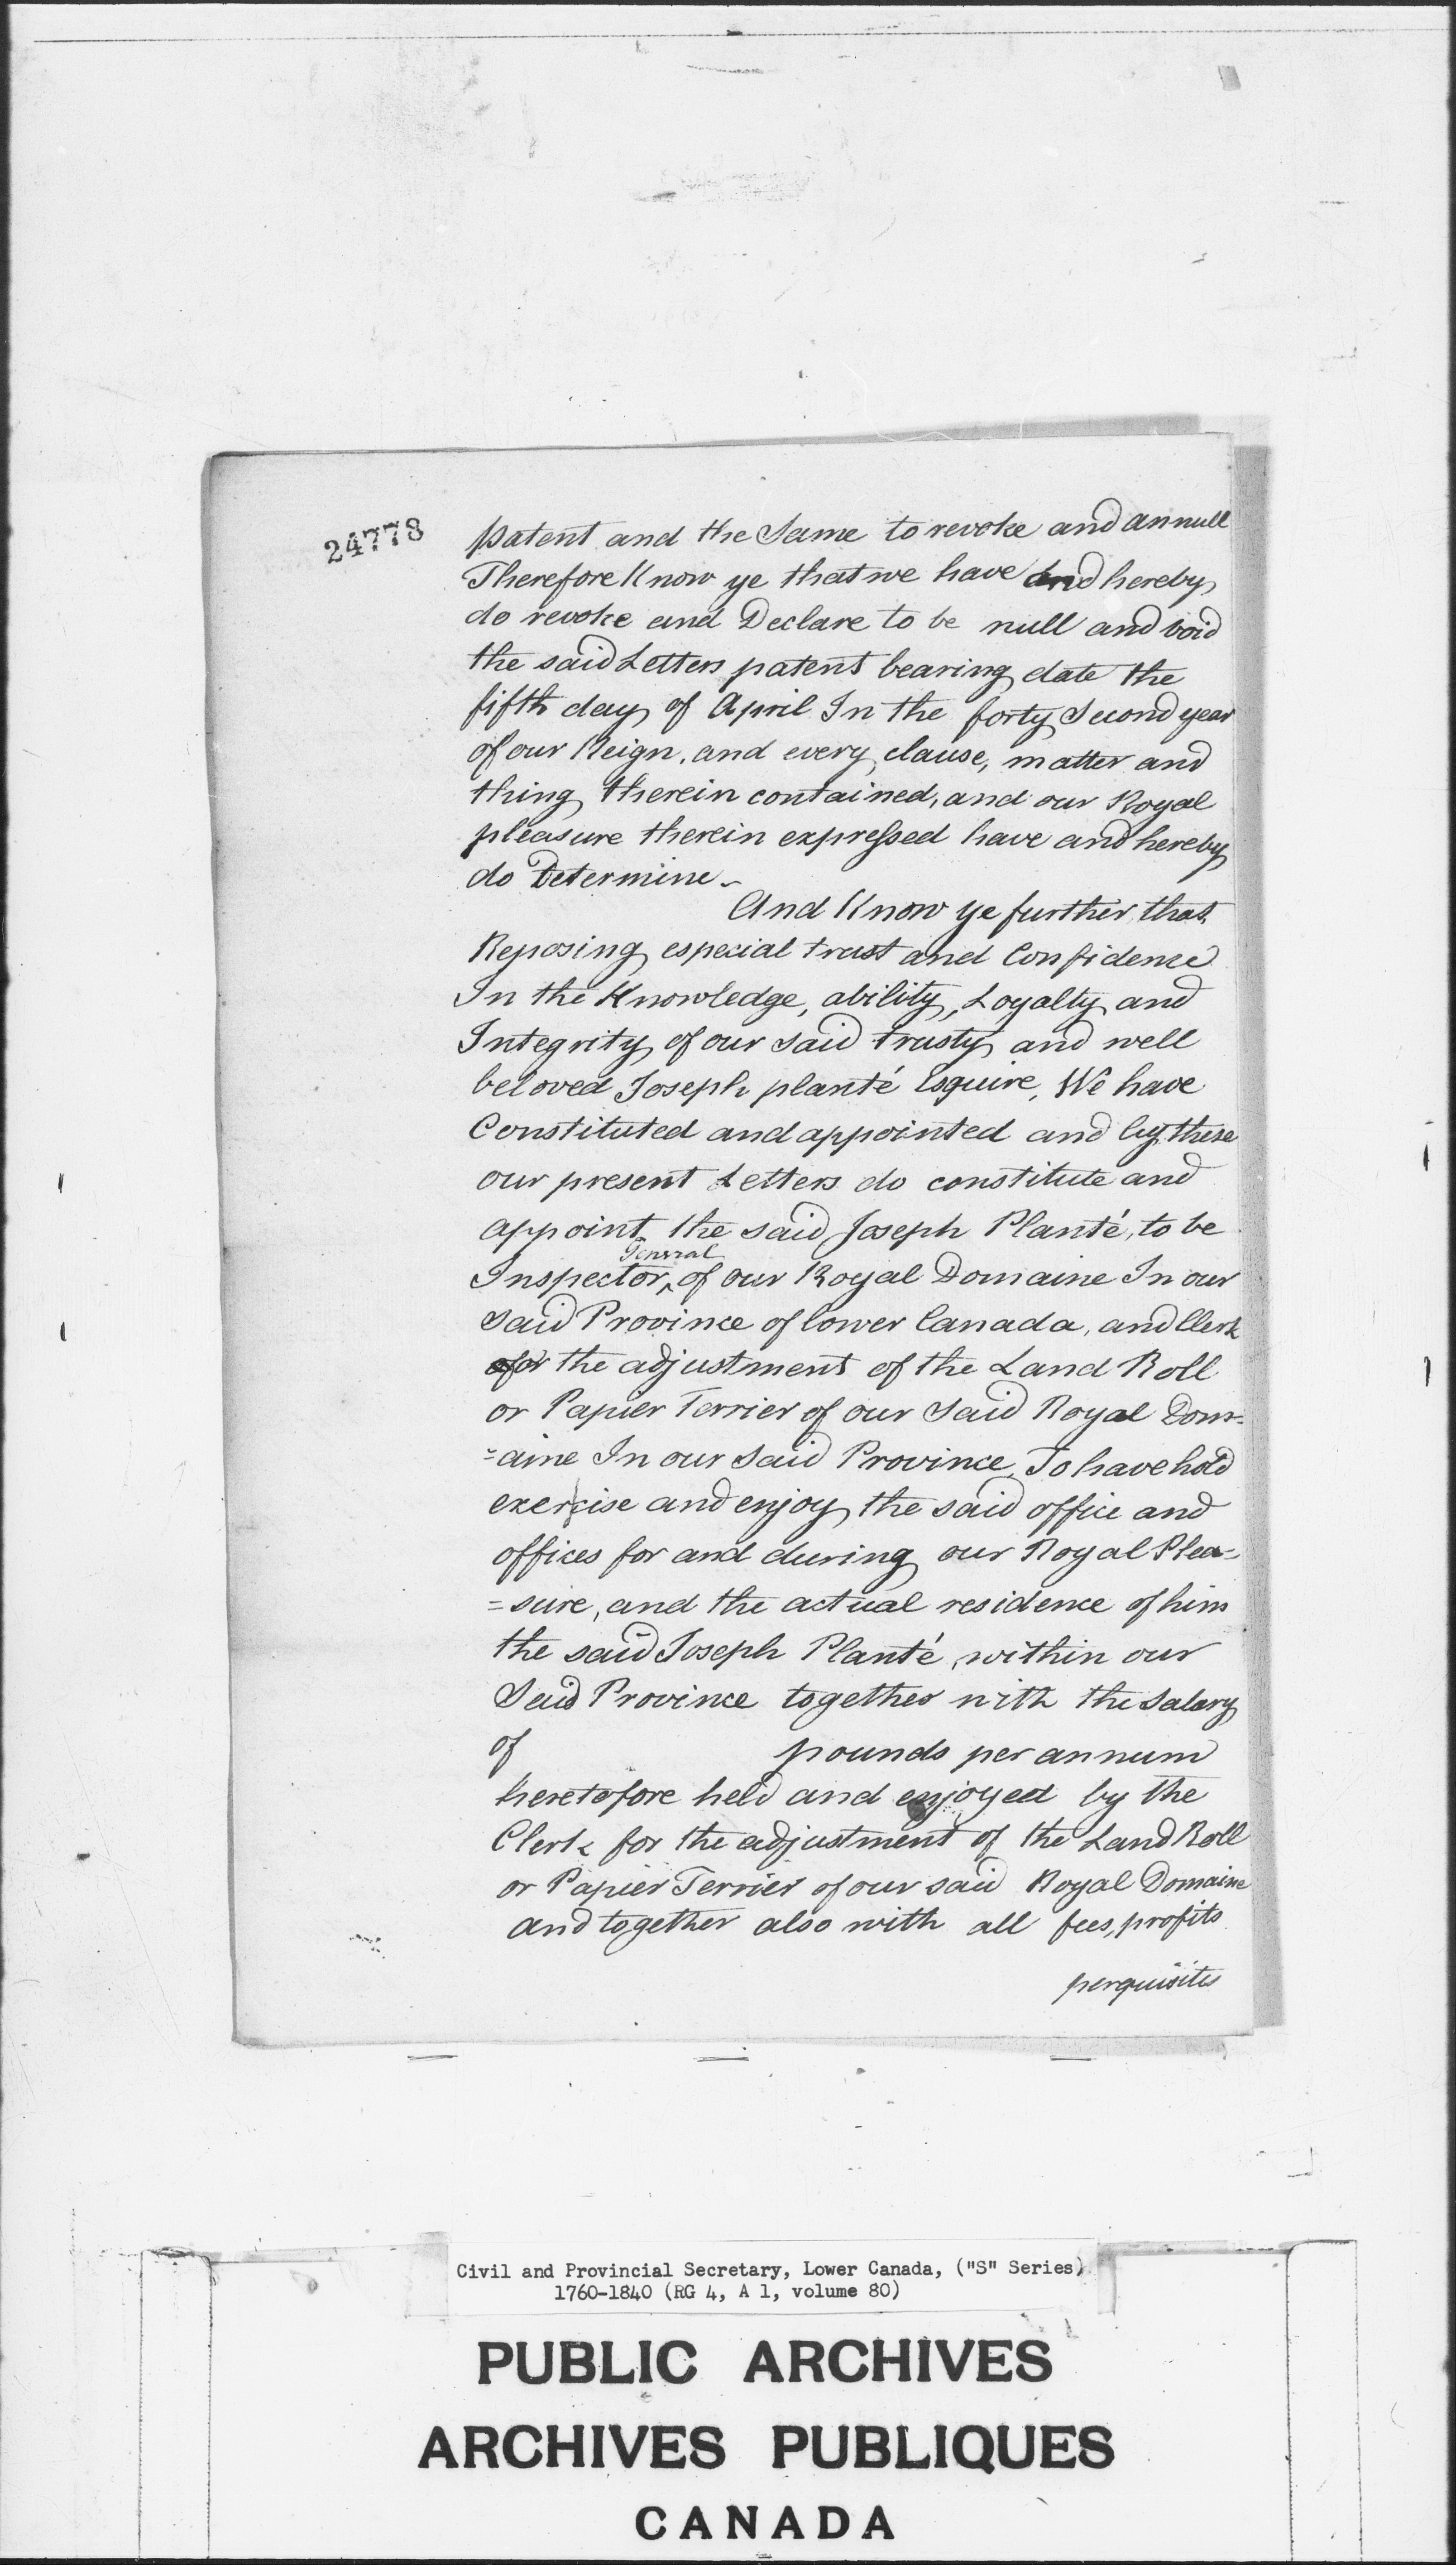 24778
patent and the Same to revoke and annull
Therefore Know ye that we have and hereby
do revoke and Declare to be null and void
the said Letters patent bearing date the
fifth day of April In the forty Second year
of our Reign, and every clause, matter and
thing therein contained, and our Royal
pleasure therein expressed have and hereby
do Determine -
And Know ye further that
Reposing especial trust and Confidence
In the Knowledge, ability, Loyalty and
Integrity of our said trusty and well
beloved Joseph planté Esquire, We have
Constituted and appointed and by these
our present Letters do constitute and
appoint the said Joseph Planté, to be
General
Inspector ^ of our Royal Domaine In our
said Province of lower Canada, and Clerk
for the adjustment of the Land Roll
or Papier Terrier of our said Royal Dom=
=aine In our said Province, To have hold
exercise and enjoy the said office and
offices for and during our Royal Plea=
=sure, and the actual residence of him
the said Joseph Planté, within our
Said Province together with the salary
of pounds per annum
heretofore held and enjoyed by the
Clerk for the adjustment of the Land Roll
or Papier Terrier of our said Royal Domaine
and together also with all fees, profits
perquisites
Civil and Provincial Secretary, Lower Canada, ("S" Series)
1760-1840 (RG 4, A 1, volume 80)
PUBLIC ARCHIVES
ARCHIVES PUBLIQUES
CANADA